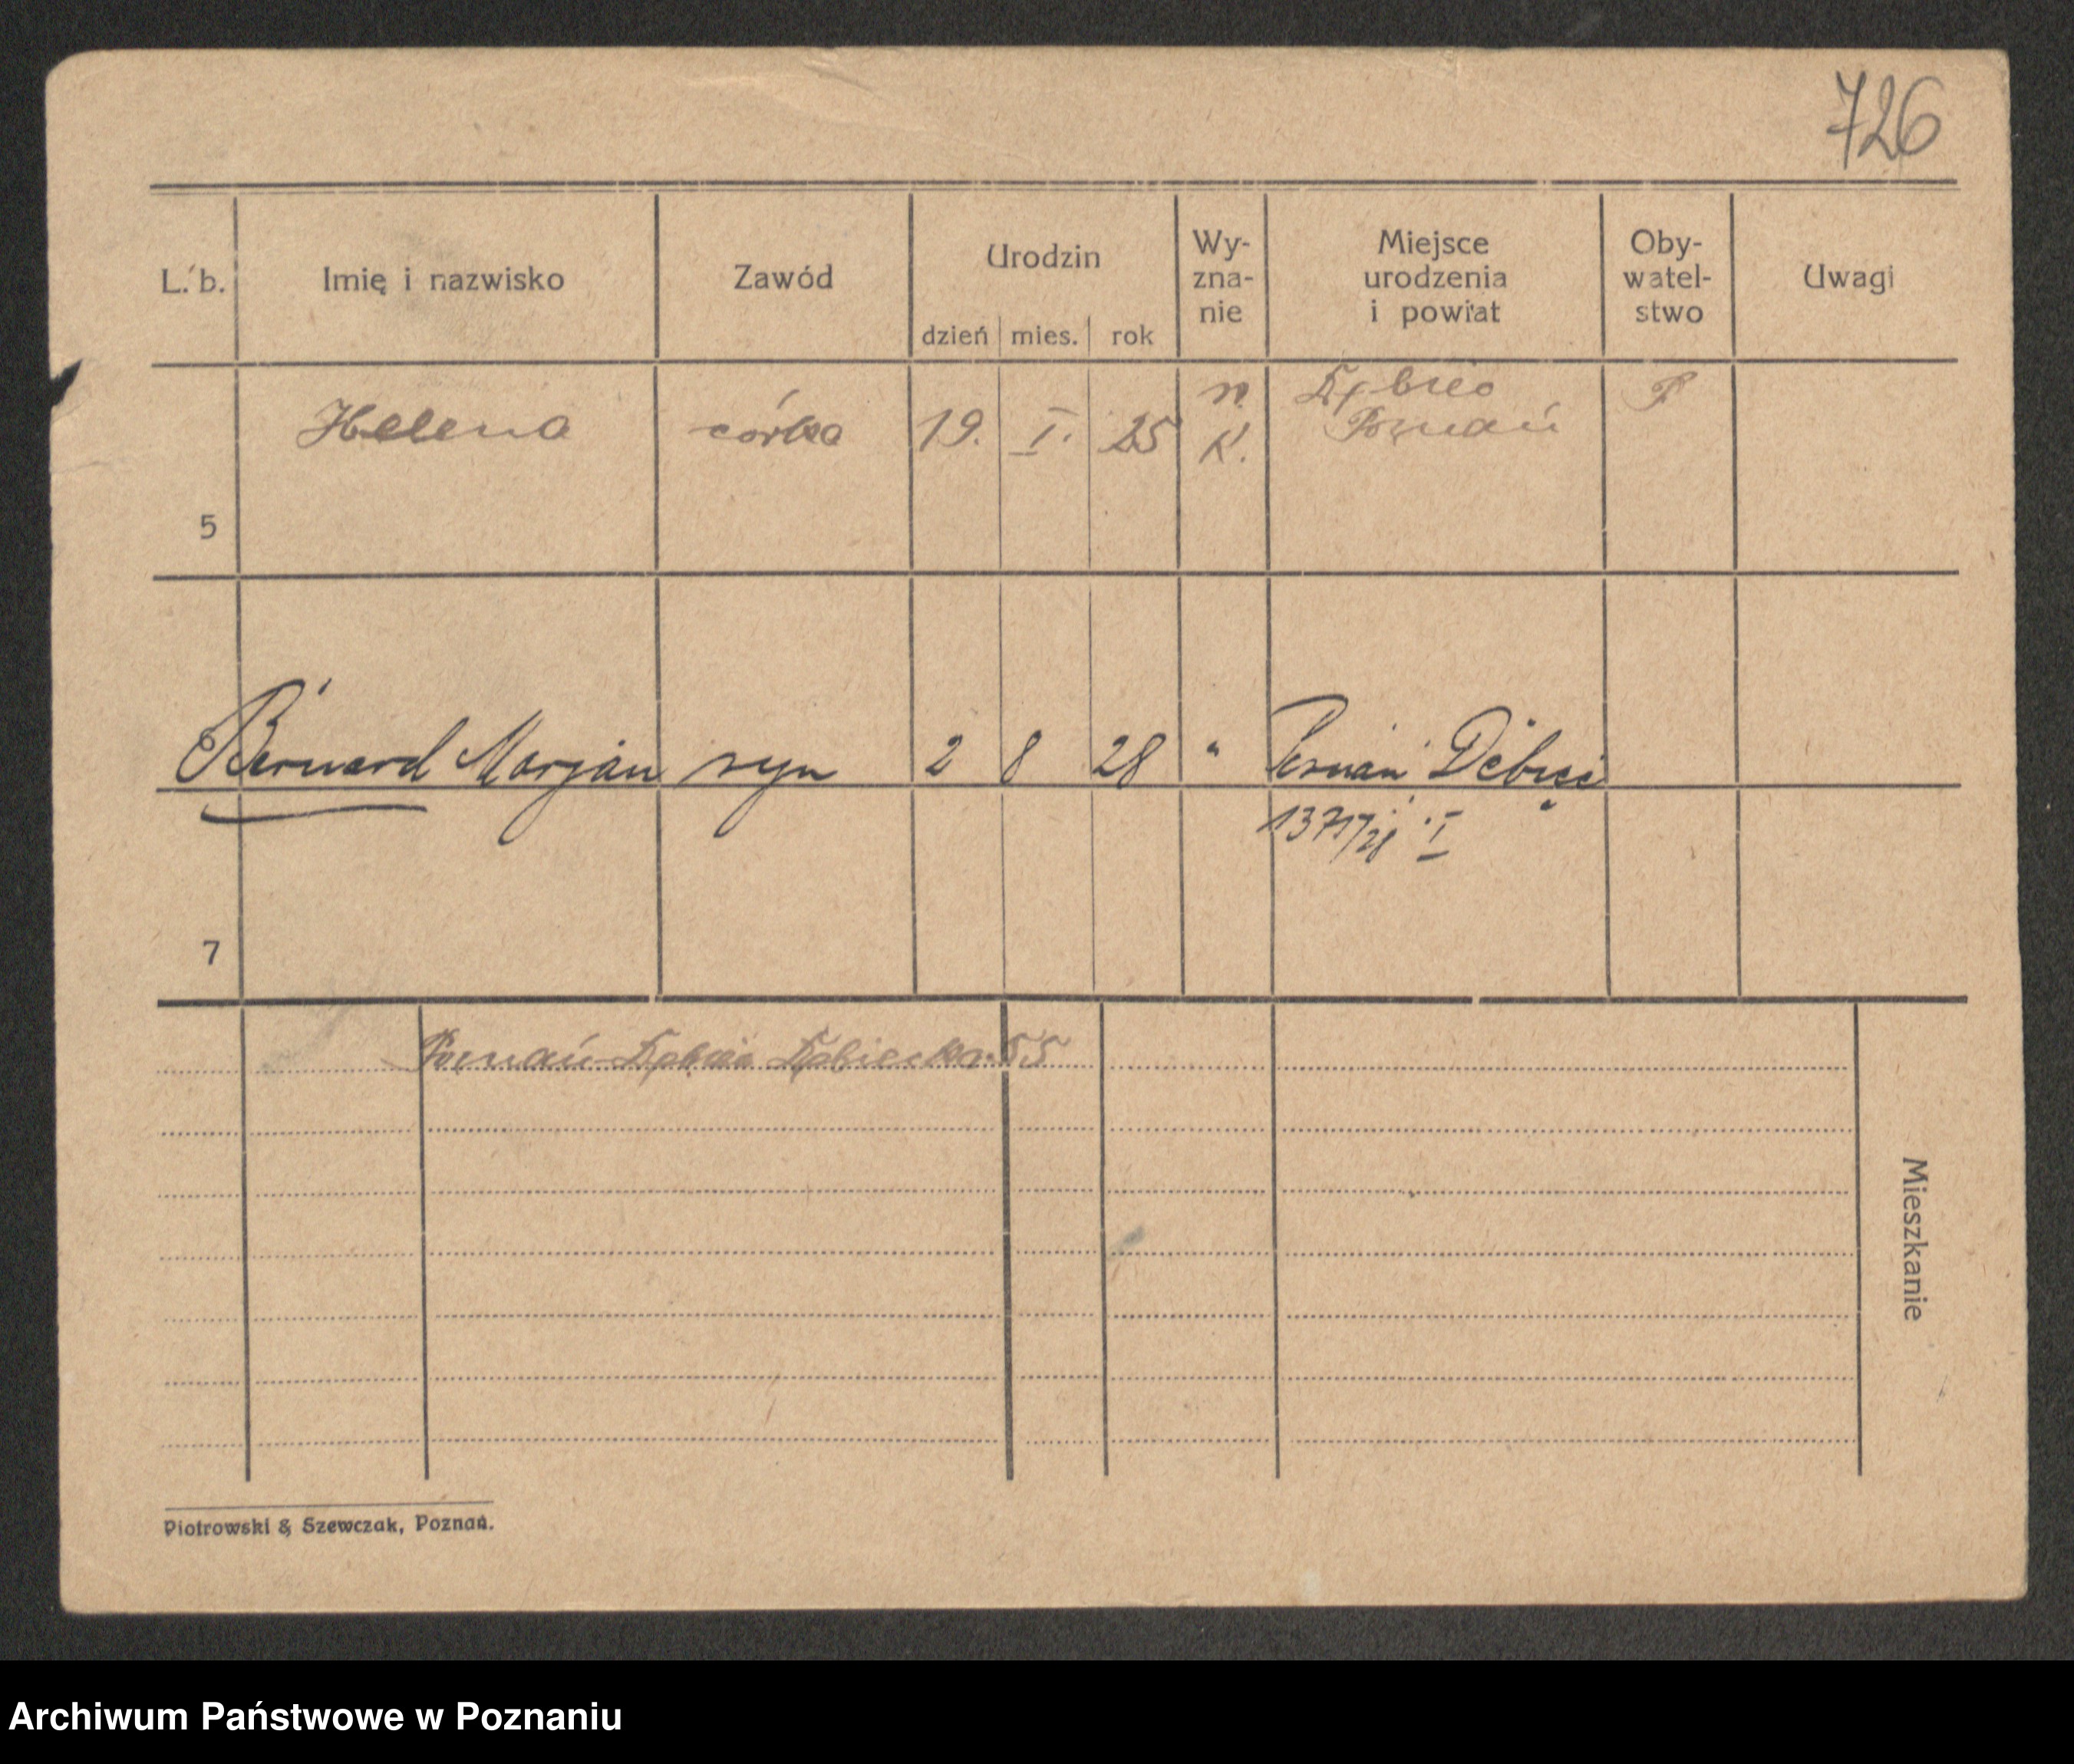 726
L. b. Imię i nazwisko Zawód Urodzin Wy- Miejsce Oby- Uwagi
zna- urodzenia watel-
nie i powiat stwo
dzień mies. rok
Helena córka 19. I. 25 r. Dębiec P
K. Poznań
5
Bernard Marjan syn 2 8 28 " Poznań Dębiec
1371/28 I
7
Poznań Dębiec Dębiecka 55
Mieszkanie
Piotrowski & Szewczak, Poznań.
Archiwum Państwowe w Poznaniu